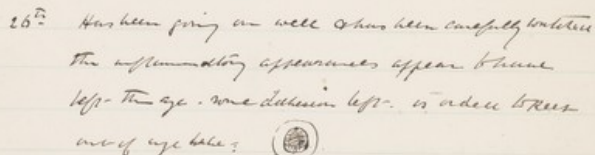 26th Has been going on well & has been carefully watched
the inflammatory appearances appear to have
left the eye. some adhesion left. is ordered to keep
out of